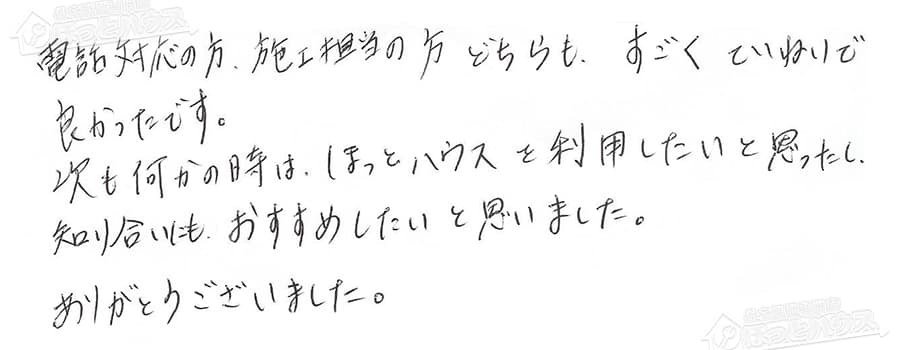 電話対応の方、施工担当の方 どちらも、すごく ていねいで
良かったです。
次も何かの時は、ほっとハウスを利用したいと思ったし、
知り合いにも、おすすめしたいと思いました。
ありがとうございました。
ほっとハウス